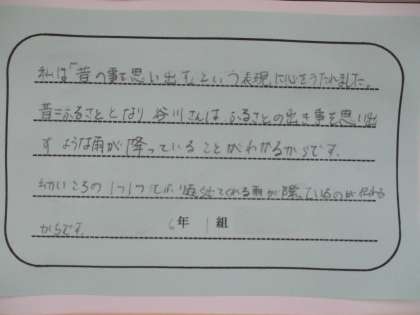 私は「昔の事を思い出す」という表現に心をうたれました。
昔=ふるさととなり谷川さんはふるさとの出き事を思い出
すような雨が降っていることがわかるからです。
幼いころの1つ1つをふり返らせてくれる雨が降っているのが伝わる
からです。 6年 1組